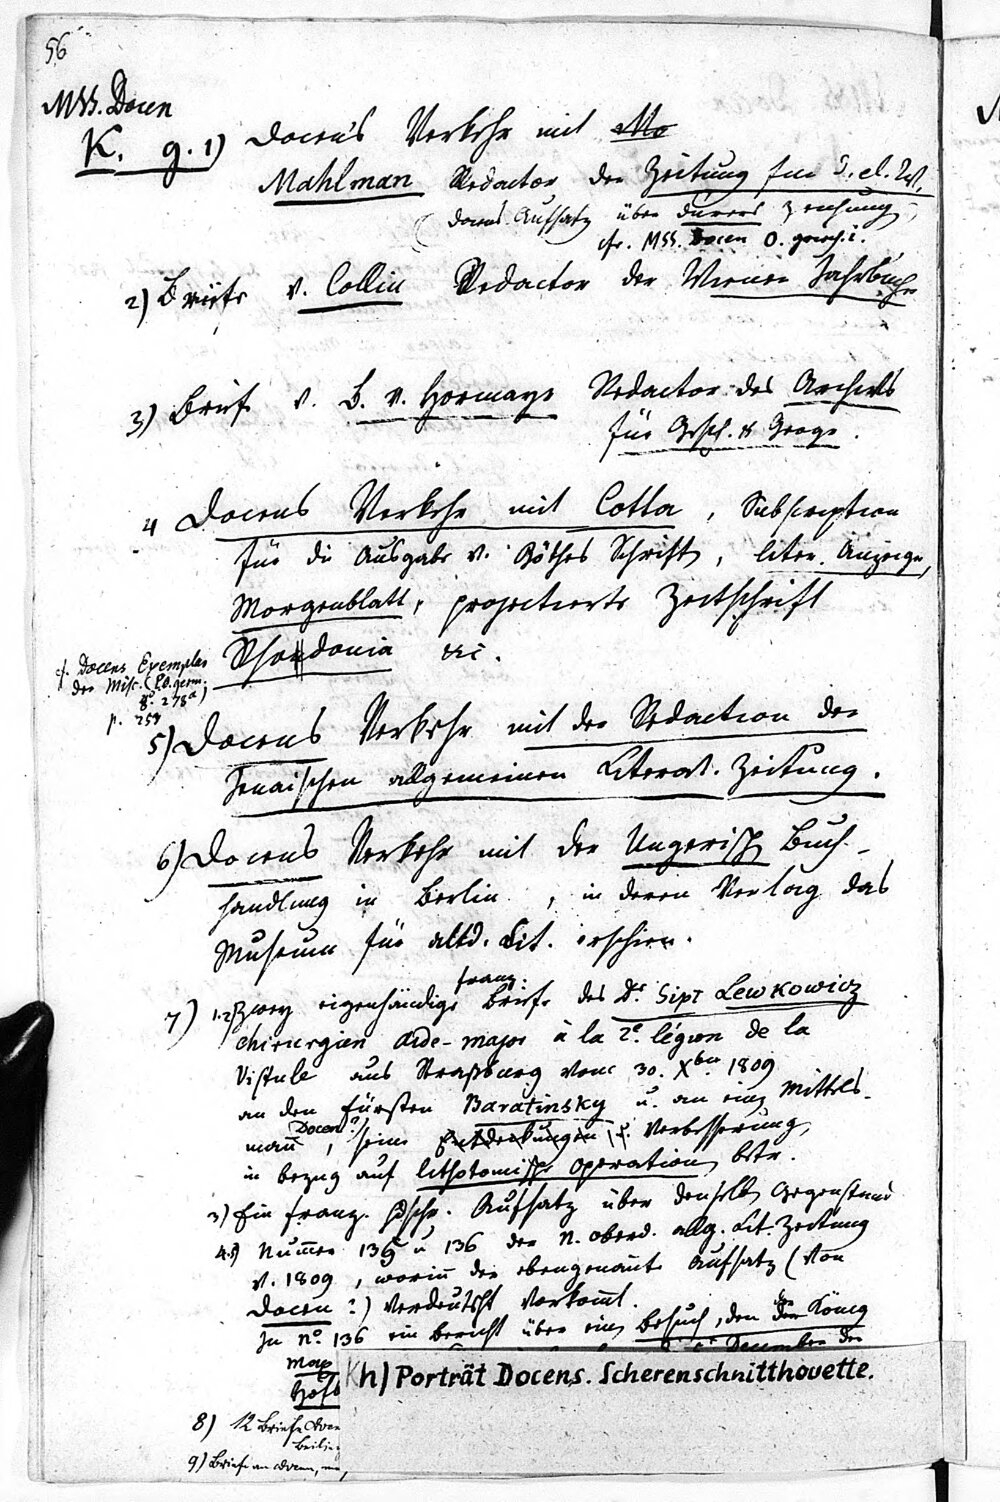 56
MSS. Docen
K. g. 1) Docens Verkehr mit Mo
Mahlman Redactor der Zeitung für d. el. W.
(Docens Aufsatz über Dürers Zeichung,
cfr. MSS. Docen O.
2) Briefe v. Collin Redactor der Wiener Jahrbücher
3) Brief v. B. v. Hormayr Redactor des Archivs
für Gesch. & Geogr.
4 Docens Verkehr mit Cotta, Subscription
für die Ausgabe v. Göthes Schrift, liter. Anzeigen,
Morgenblatt, projectierte Zeitschrift
&c.
cf. Docens Exemplar
der Misc. (P.O. germ.
8° 278a)
p. 258
5) Docens Verkehr mit der Redaction der
Jenaischen allgemeinen Literat. Zeitung.
6) Docens Verkehr mit der Ungerisch Buch-
handlung in Berlin, in deren Verlag das
Museum für altd. Lit. erschien.
7) 1.2) Zwey eigenhändige franz. Briefe des Dr. Sipt Lewkowicz
chirurgien aide-major à la 2e légion de la
Vistule aus Straßburg vom 30. Xber 1809
an den Fürsten Baratinsky u. an einen Mittels-
mann (Docen?), seine Entdeckungen u. Verbesserung
in bezug auf lithotomische Operationen betr.
3) Ein franz. Hdschr. Aufsatz über denselben Gegenstand
4.5) Nummer 135 u 136 der N. oberd. allg. Lit. Zeitung
v. 1809, worin der ebengenannte Aufsatz (von
Docen?) verdeutscht vorkommt.
In No. 136 ein Bericht über einen Besuch, den der König
December der
Max
Hofb
Kh) Porträt Docens. Scherenschnitthouette.
8) 12 Briefe
9) Briefe an Docen,